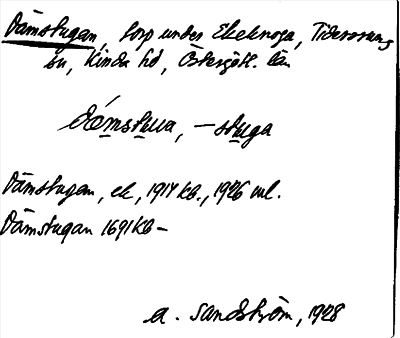 Dämstugan, torp under Ekeknosa, Tidersrums
sn, Kinda hd, Östergötl. län
dä́mstuua, –stuga
Dämstugan, ek, 1914 kb., 1926 vl.
Dämstugan 1691 Kb –
A. Sandström, 1928